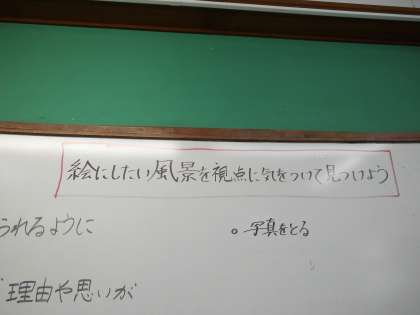 絵にしたい風景を視点に気をつけて見つけよう
られるように
○写真をとる
理由や思いが